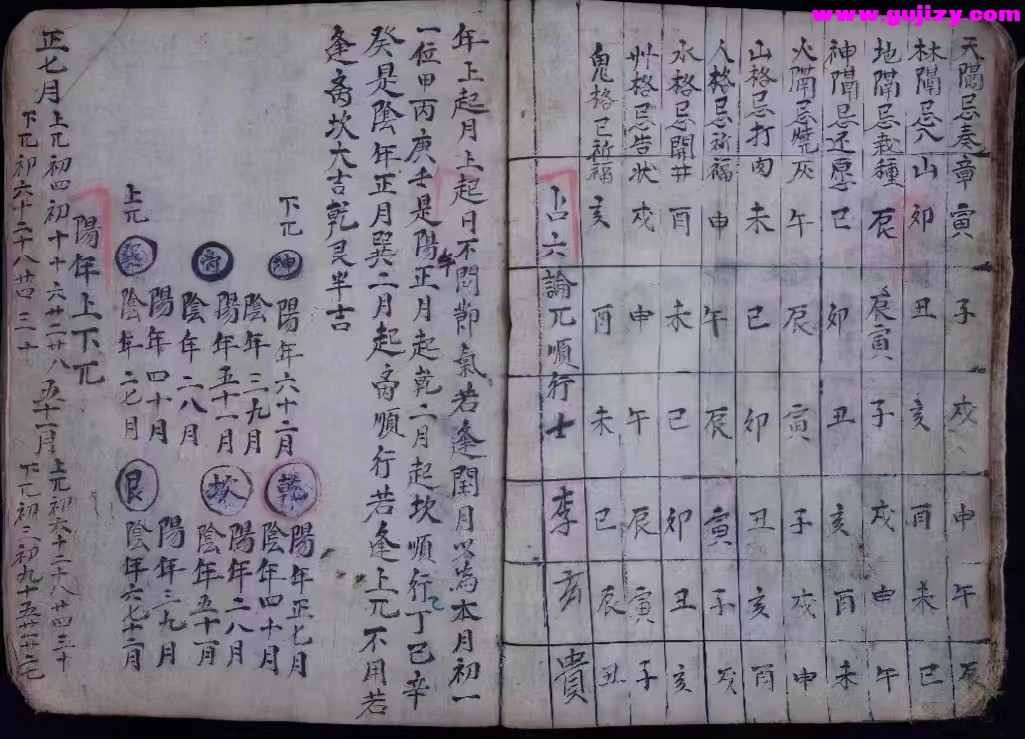 www.gujizy.com
天隔忌奏章 寅 子 戌 申 午 辰
林隔忌入山 卯 丑 亥 酉 未 巳
地隔忌栽種 辰 辰寅 子 戌 申 午
神隔忌还愿 巳 卯 丑 亥 酉 未
火隔忌燒灰 午 辰 寅 子 戌 申
山格忌打肉 未 巳 卯 丑 亥 酉
人格忌祈福 申 午 辰 寅 子 戌
水格忌開井 酉 未 巳 卯 丑 亥
州格忌告状 戌 申 午 辰 寅 子
鬼格已祈福 亥 酉 未 巳 辰 丑
占六論兀順行士 李 亥 貴
年上起月上起日不問節氣若逢閏月以為本月初一
一位甲丙庚壬是陽年正月起乾二月起坎順行丁己辛乙
癸是陰年正月巽二月起离順行若逢上兀不用若
逢离坎大吉乾艮半吉
下兀 坤 陽年六十二月
乾 陽年正七月
陰年三九月
陰年四十月
离 陽年五十一月
坎 陽年二八月
陰年二八月
陰年五十一月
上兀 巽 陽年四十月
艮 陽年三九月
陰年二七月
陰年六七十二月
陽年上下兀
正七月 上兀初四初十十六廿二廿八
下兀初六十二十八廿四三十
五十一月 上兀初六十二十八廿四三十
下兀初三初九十五廿一廿七